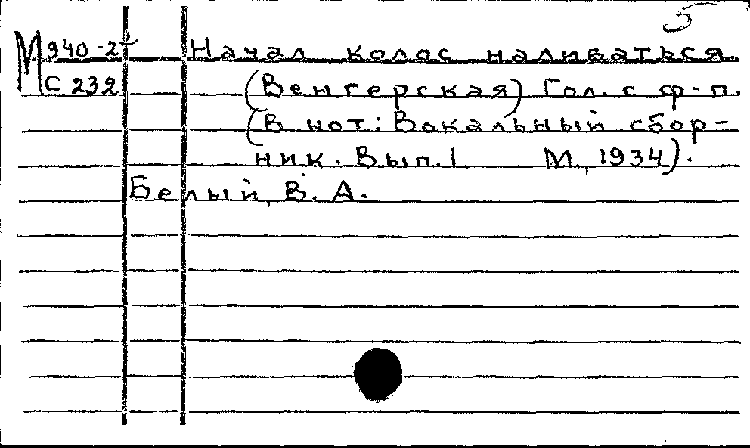 5
М 940-2 Начал колос наливаться.
С 232 (Венгерская) Гол. с ф-п.
(В нот: Вокальный сбор-
ник. Вып. 1 М., 1934).
Белый, В. А.